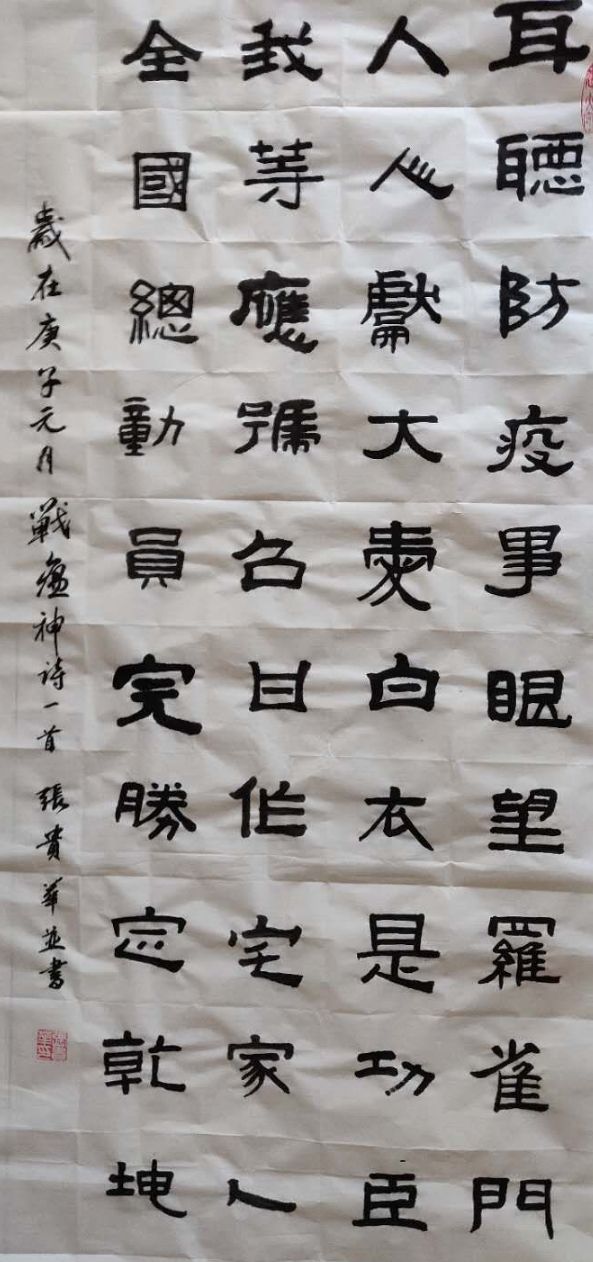 耳聽防疫事眼望羅雀門
人人獻大愛白衣是功臣
我等應號召甘作宅家人
全國總動員完勝定乾坤
歲在庚子元月戰瘟神诗一首 張貴華並書